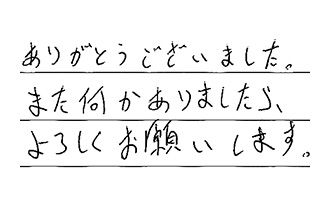 ありがとうございました。
また何かありましたら、
よろしくお願いします。